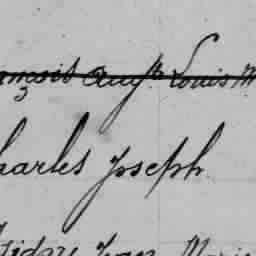 ançois Aug.te Louis M
harles Joseph
sidore Jean Marie